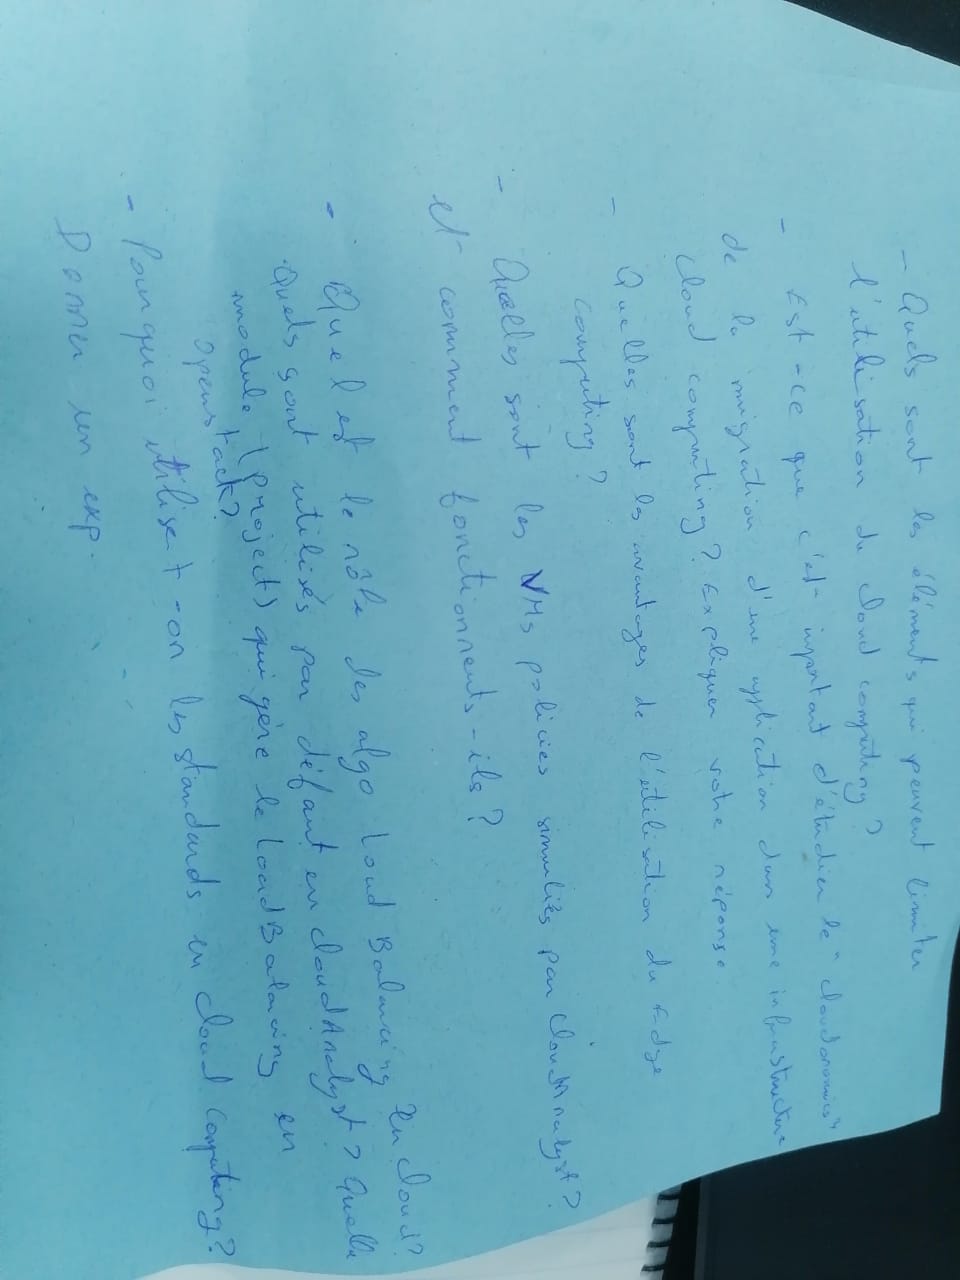 - Quels sont les éléments qui peuvent limiter
l'utilisation du Cloud computing ?
- Est-ce que c'est important d'étudier le "cloudonomics"
de la migration d'une application dans une infrastructure
Cloud computing ? Expliquer votre réponse.
- Quelles sont les avantages de l'utilisation du Edge
Computing ?
- Quelles sont les VMs policies simuliés par CloudAnalyst ?
et comment fonctionnents-ils ?
- Quel est le rôle des algo Load Balancing En Cloud ?
Quels sont utilisés par défaut en CloudAnalyst ? Quelle
module (project) qui gère le LoadBalancing en
Openstack ?
- Pourquoi utilise-t-on les standards en Cloud Computing ?
Donner un exp.